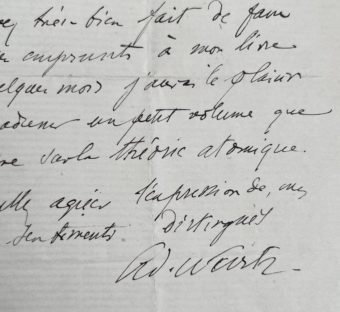 ez très-bien fait de faire
emprunts à mon livre
elques mois j'aurai le plaisir
adresser un petit volume que
sur la théorie atomique.
agréer l'expression de mes
sentiments distingués
Ad. Wurtz.